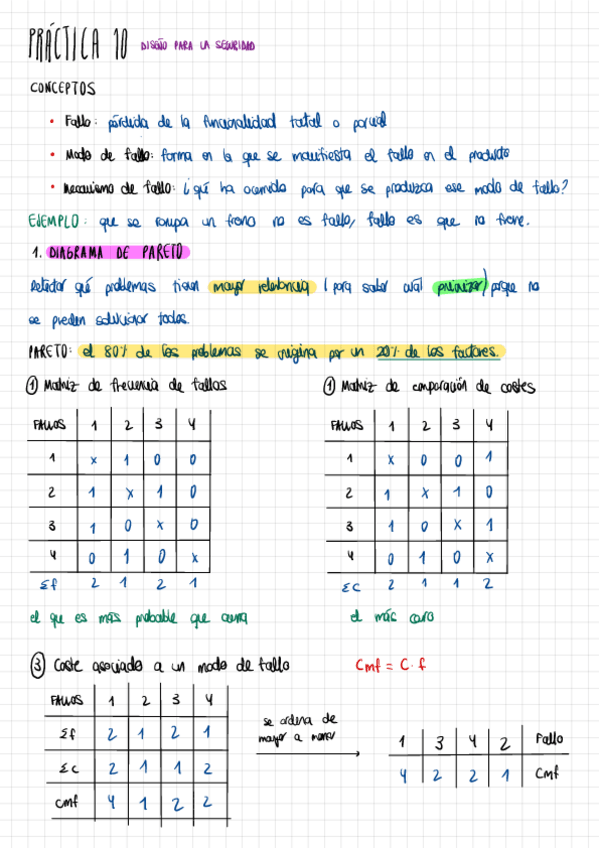 PRÁCTICA 10 DISEÑO PARA LA SEGURIDAD
CONCEPTOS
• Fallo: pérdida de la funcionalidad total o parcial
• Modo de fallo: forma en la que se manifiesta el fallo en el producto
• Mecanismo de fallo: ¿qué ha ocurrido para que se produzca ese modo de fallo?
EJEMPLO: que se rompa un freno no es fallo, fallo es que no frene.
1. DIAGRAMA DE PARETO
Detectar qué problemas tienen mayor relevancia (para saber cuál priorizar) porque no
se pueden solucionar todos.
PARETO: el 80% de los problemas se origina por un 20% de los factores.
① Matriz de frecuencia de fallos
FALLOS 1 2 3 4
1 x 1 0 0
2 1 x 1 0
3 1 0 x 0
4 0 1 0 x
Σf 2 1 2 1
el que es más probable que ocurra
① Matriz de comparación de costes
FALLOS 1 2 3 4
1 x 0 0 1
2 1 x 1 0
3 1 0 x 1
4 0 1 0 x
ΣC 2 1 1 2
el más caro
③ Coste asociado a un modo de fallo
Cmf = C · f
FALLOS 1 2 3 4
Σf 2 1 2 1
ΣC 2 1 1 2
Cmf 4 1 2 2
se ordena de
mayor a menor
1 3 4 2 Fallo
4 2 2 1 Cmf